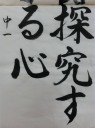 探究す
る心
中一